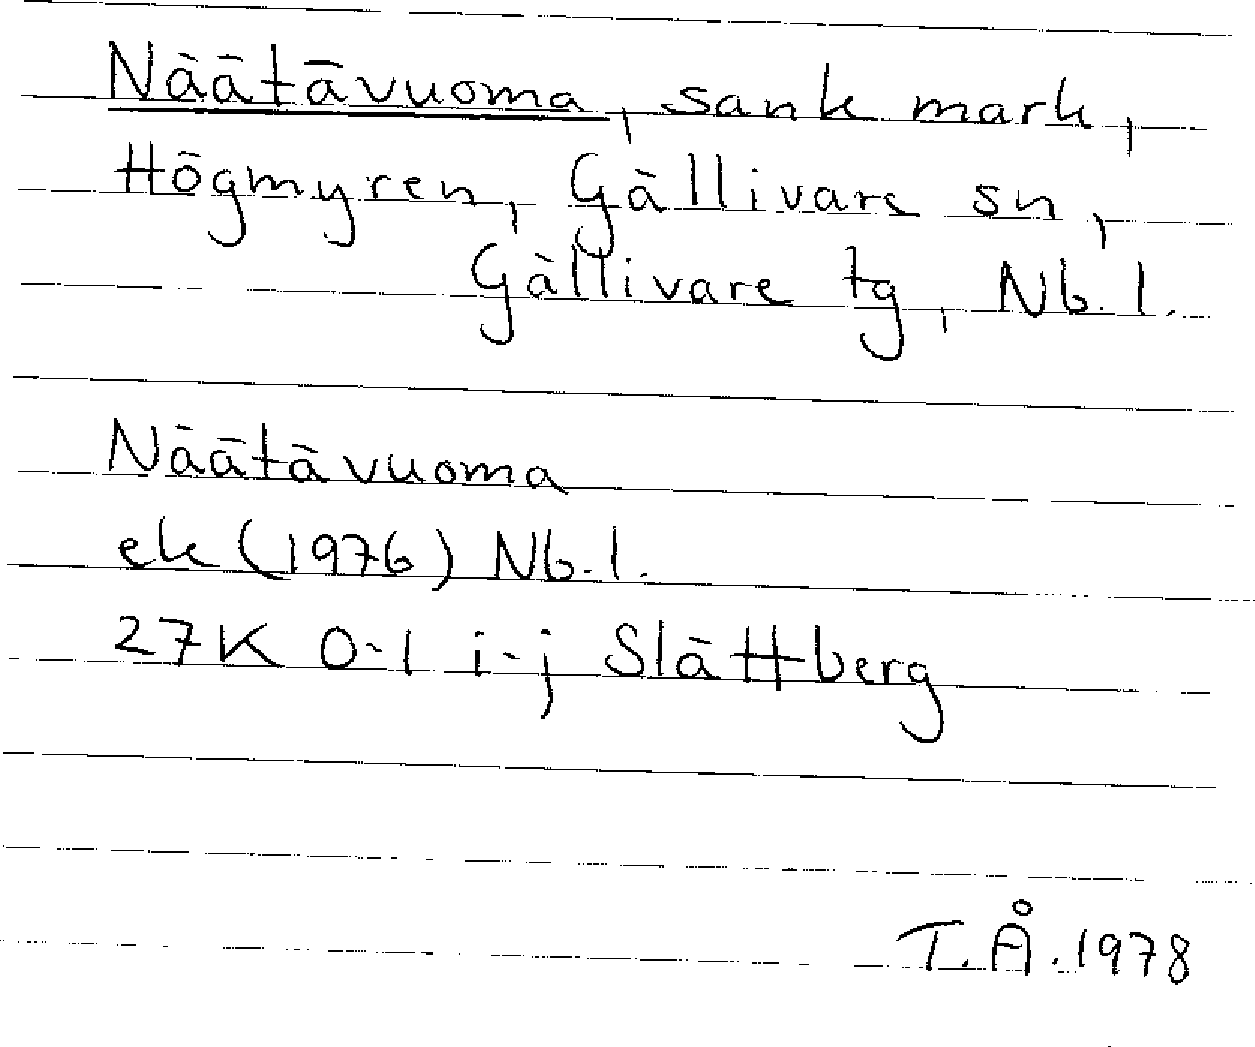 Näätävuoma, sank mark,
Högmyren, Gällivare sn,
Gällivare tg, Nb. l.
Näätävuoma
ek (1976) Nb. l.
27K 0-1 i-j Slättberg
T.Å. 1978